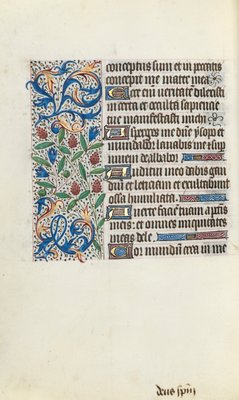 conceptus sum et in peccatis
concepit me mater mea
Ecce eni veritatē dilexisti
incerta et occulta sapiencie
tue manifestasti michi
Asperges me dn̄e ysopo et
mundabor lauabis me et sup
niuem dealbabor
Auditui meo dabis gau
diū et leticiam et exultabunt
ossa humiliata
Auerte faciē tuam a pctīs
meis et omnes iniquitates
meas dele
Cor mundū crea in me
deus spūm